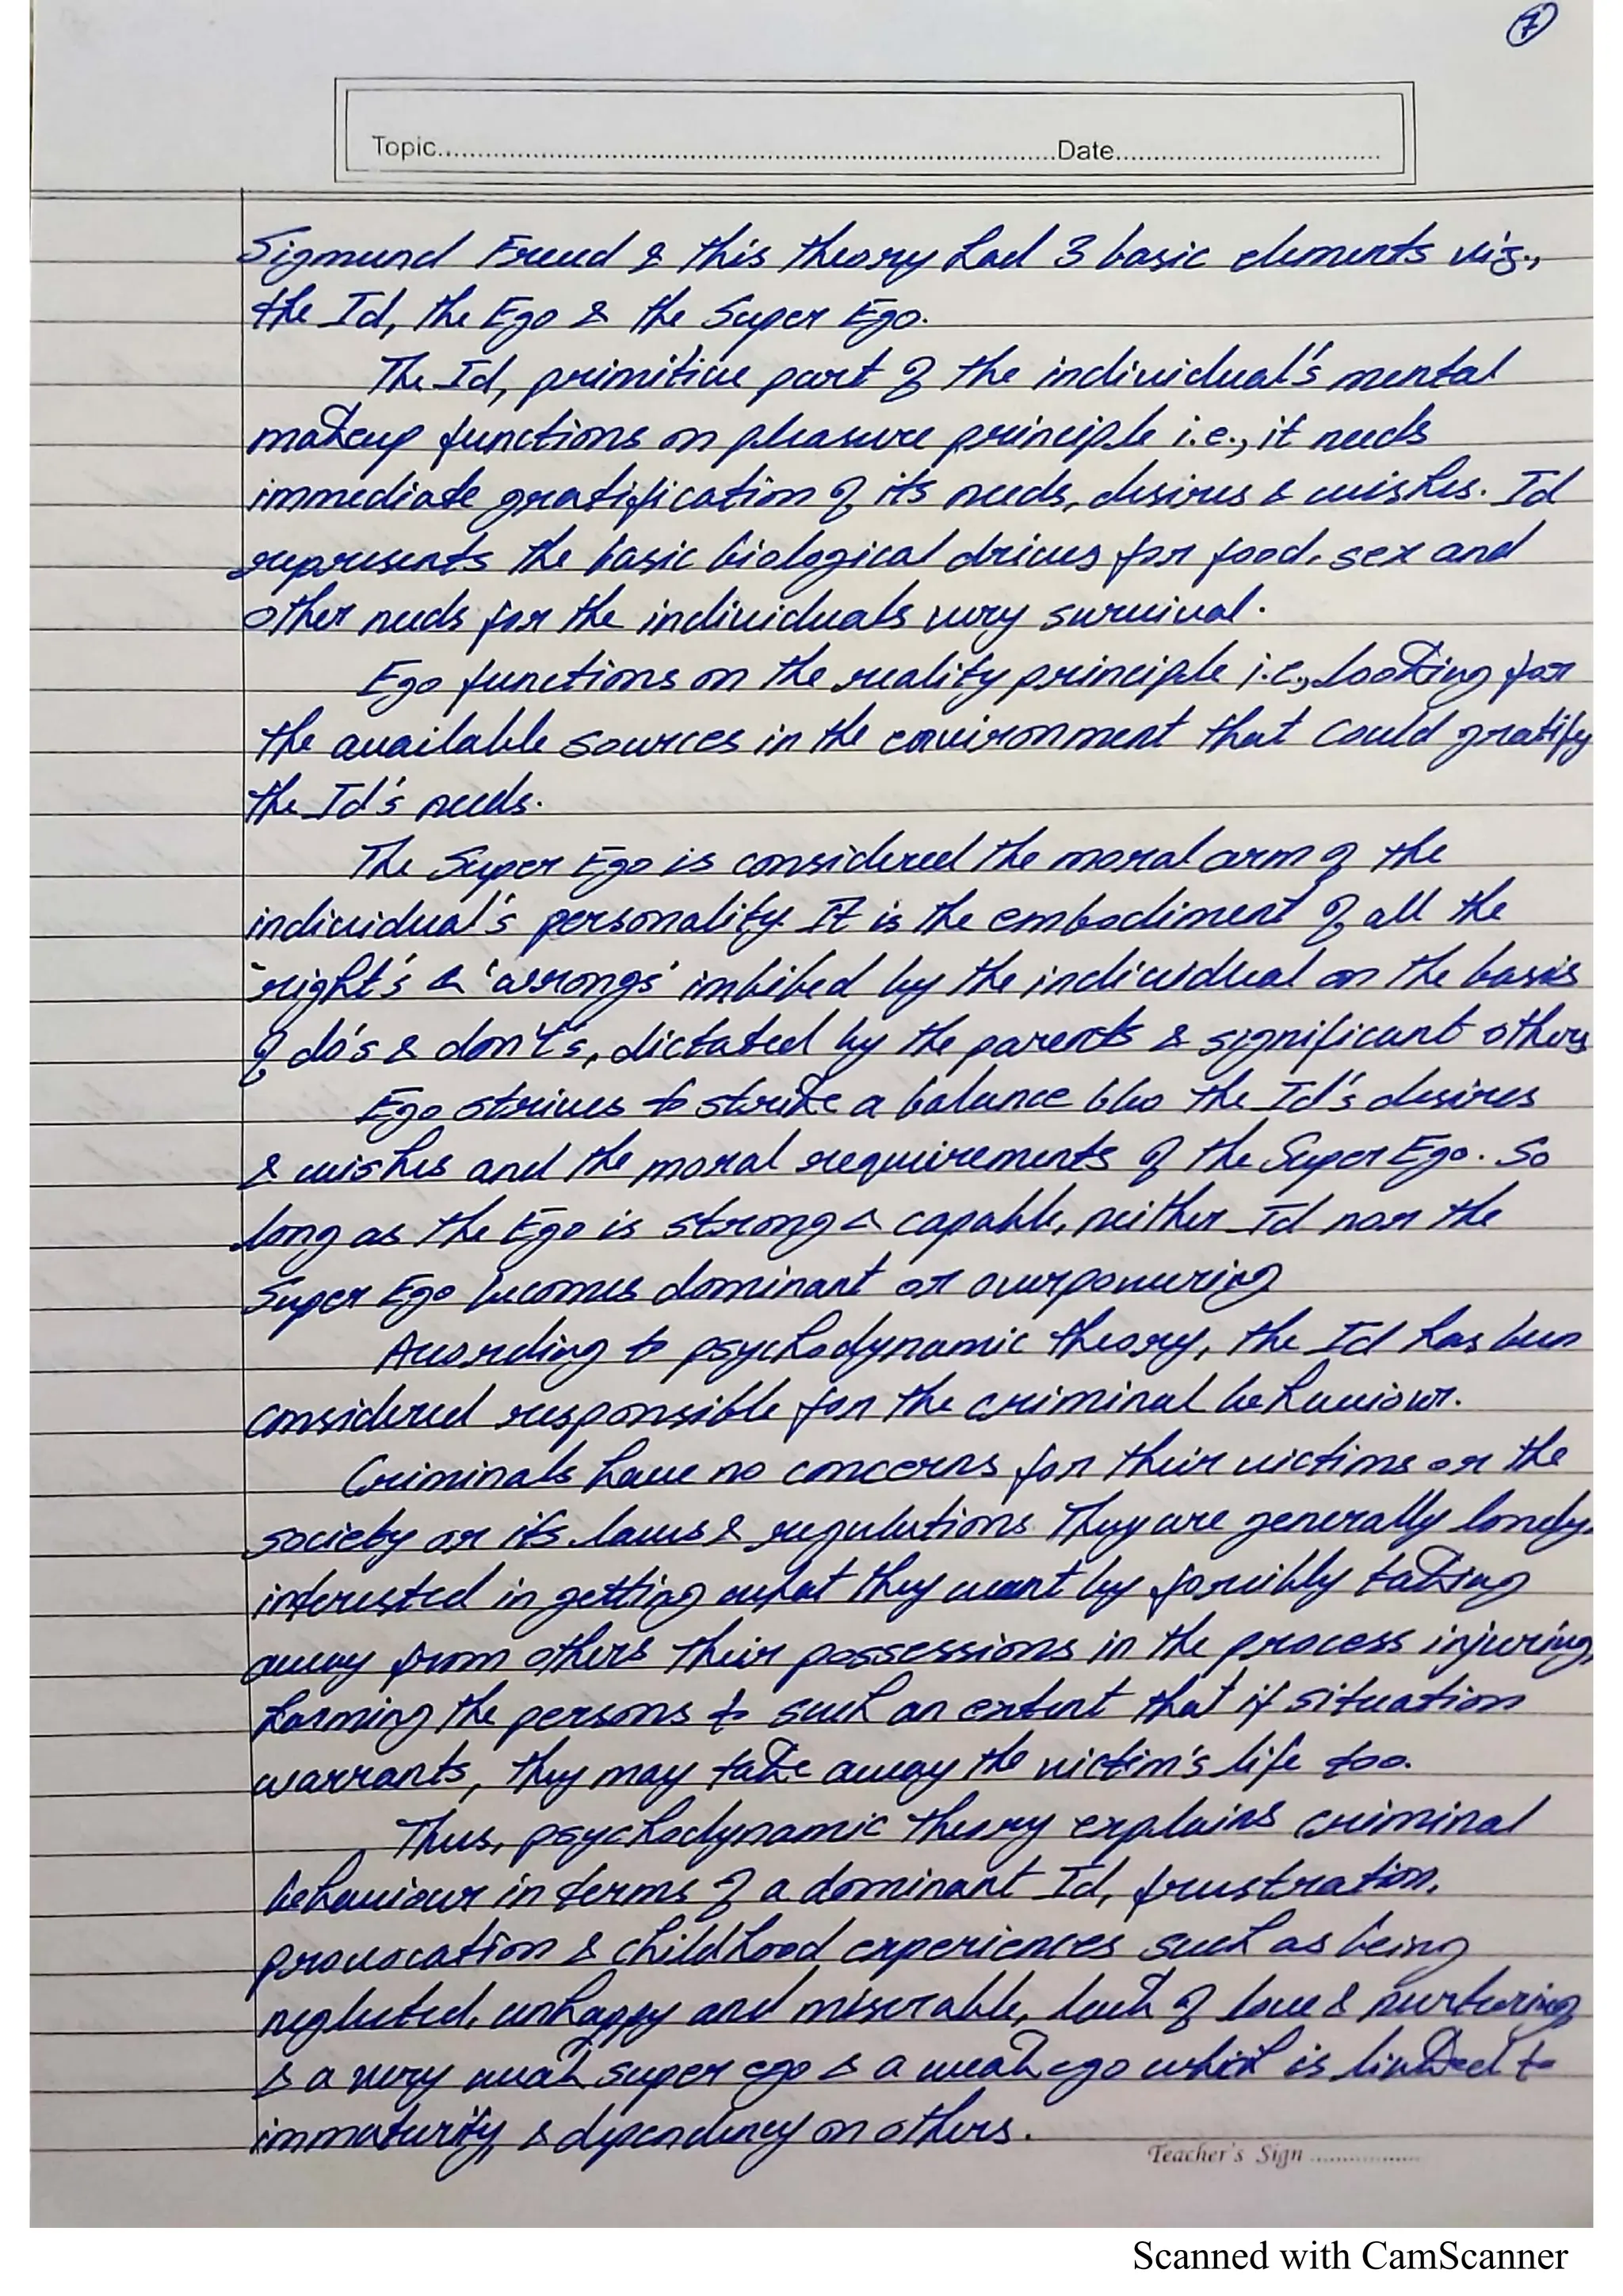 7
Topic.....................................................Date.....................
Sigmund Freud & this theory had 3 basic elements viz.,
the Id, the Ego & the Super Ego.
The Id, primitive part of the individual's mental
makeup functions on pleasure principle i.e., it needs
immediate gratification of its needs, desires & wishes. Id
represents the basic biological drives for food, sex and
other needs for the individuals very survival.
Ego functions on the reality principle i.e., looking for
the available sources in the environment that could gratify
the Id's needs.
The Super Ego is considered the moral arm of the
individual's personality. It is the embodiment of all the
'right's & 'wrongs' imbibed by the individual on the basis
of do's & don't's, dictated by the parents & significant others
Ego strives to strike a balance b/w the Id's desires
& wishes and the moral requirements of the Super Ego. So
long as the Ego is strong & capable, neither Id nor the
Super Ego becomes dominant or overpowering
According to psychodynamic theory, the Id has been
considered responsible for the criminal behaviour.
Criminals have no concerns for their victims or the
society or its laws & regulations. They are generally lonely,
interested in getting what they want by forcibly taking
away from others their possessions in the process injuring,
harming the persons to such an extent that if situation
warrants, they may take away the victim's life too.
Thus, psychodynamic theory explains criminal
behaviour in terms of a dominant Id, frustration,
provocation & childhood experiences such as being
neglected, unhappy and miserable, lack of love & nurturing
& a very weak super ego & a weak ego which is linked to
immaturity & dependency on others.
Teacher's Sign ................
Scanned with CamScanner